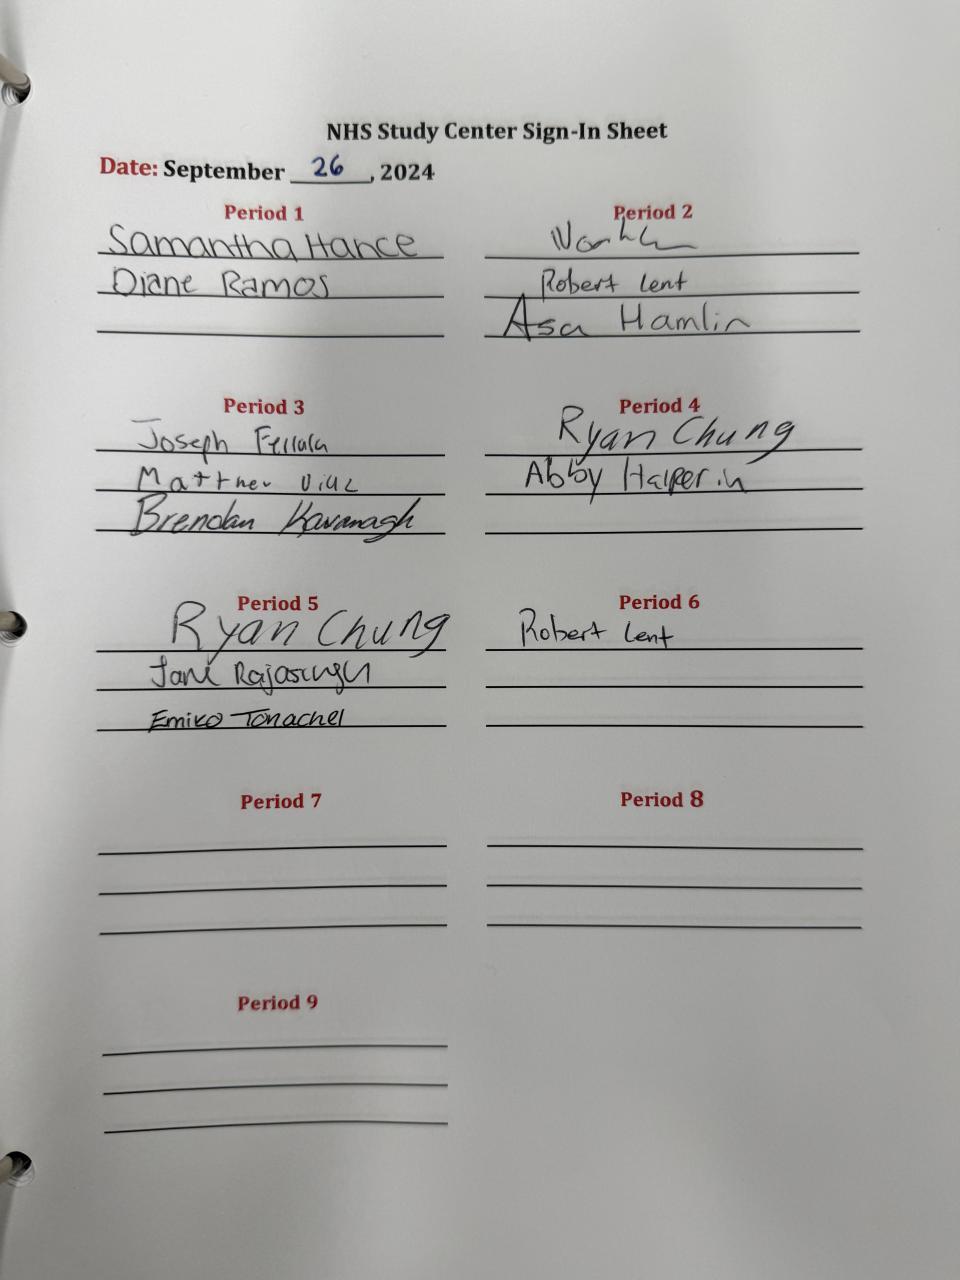 NHS Study Center Sign-In Sheet
Date: September 26, 2024
Period 1
Samantha Hance
Diane Ramos
Period 2
Robert Lent
Asa Hamlin
Period 3
Joseph
Matthew
Brendan Kavanagh
Period 4
Ryan Chung
Abby Halperin
Period 5
Ryan Chung
Emiko Tonachel
Period 6
Robert Lent
Period 7
Period 8
Period 9